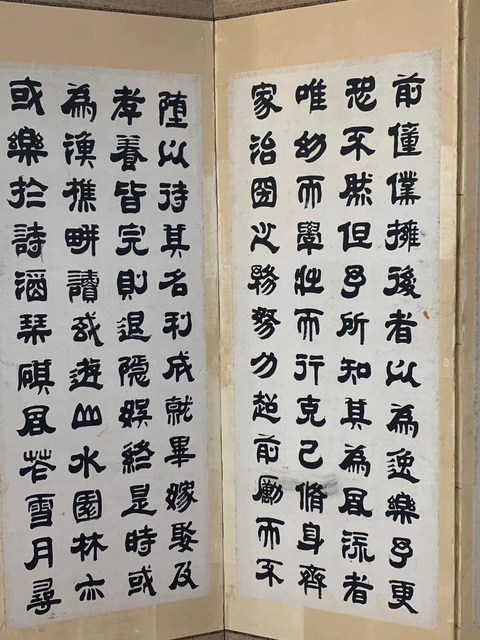 前僮僕擁後者以為逸樂予更
恐不然但予所知其為風流者
唯幼而學壯而行克己脩身齊
家治國之務努力超前勵而不
墮以待其名利成就畢嫁娶及
孝養皆完則退隱娛終是時或
為漁樵畊讀或遊山水園林亦
或樂於詩酒琴碁風花雪月尋